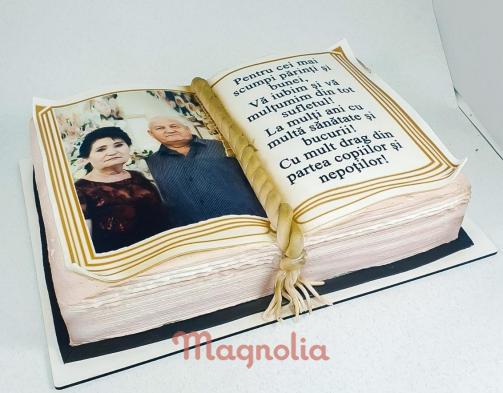 Pentru cei mai
scumpi părinți și
bunei,
Vă iubim și vă
mulțumim din tot
sufletul!
La mulți ani cu
multă sănătate și
bucurii!
Cu mult drag din
partea copiilor și
nepoților!
Magnolia